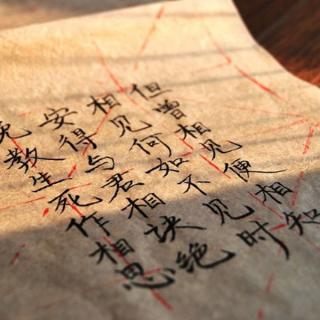 但曾相见便相知
相见何如不见时
安得与君相块绝
免教生死作相思